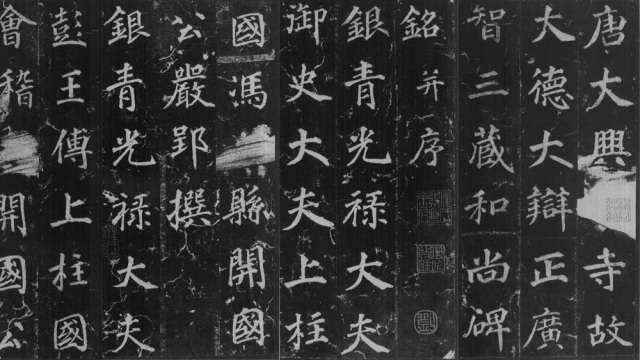 唐大興寺故
大德大辯正廣
智三藏和尚碑
銘并序
銀青光禄大夫
御史大夫上柱
國馮縣開國
公嚴郢撰
銀青光禄大夫
彭王傅上柱國
會稽開國公